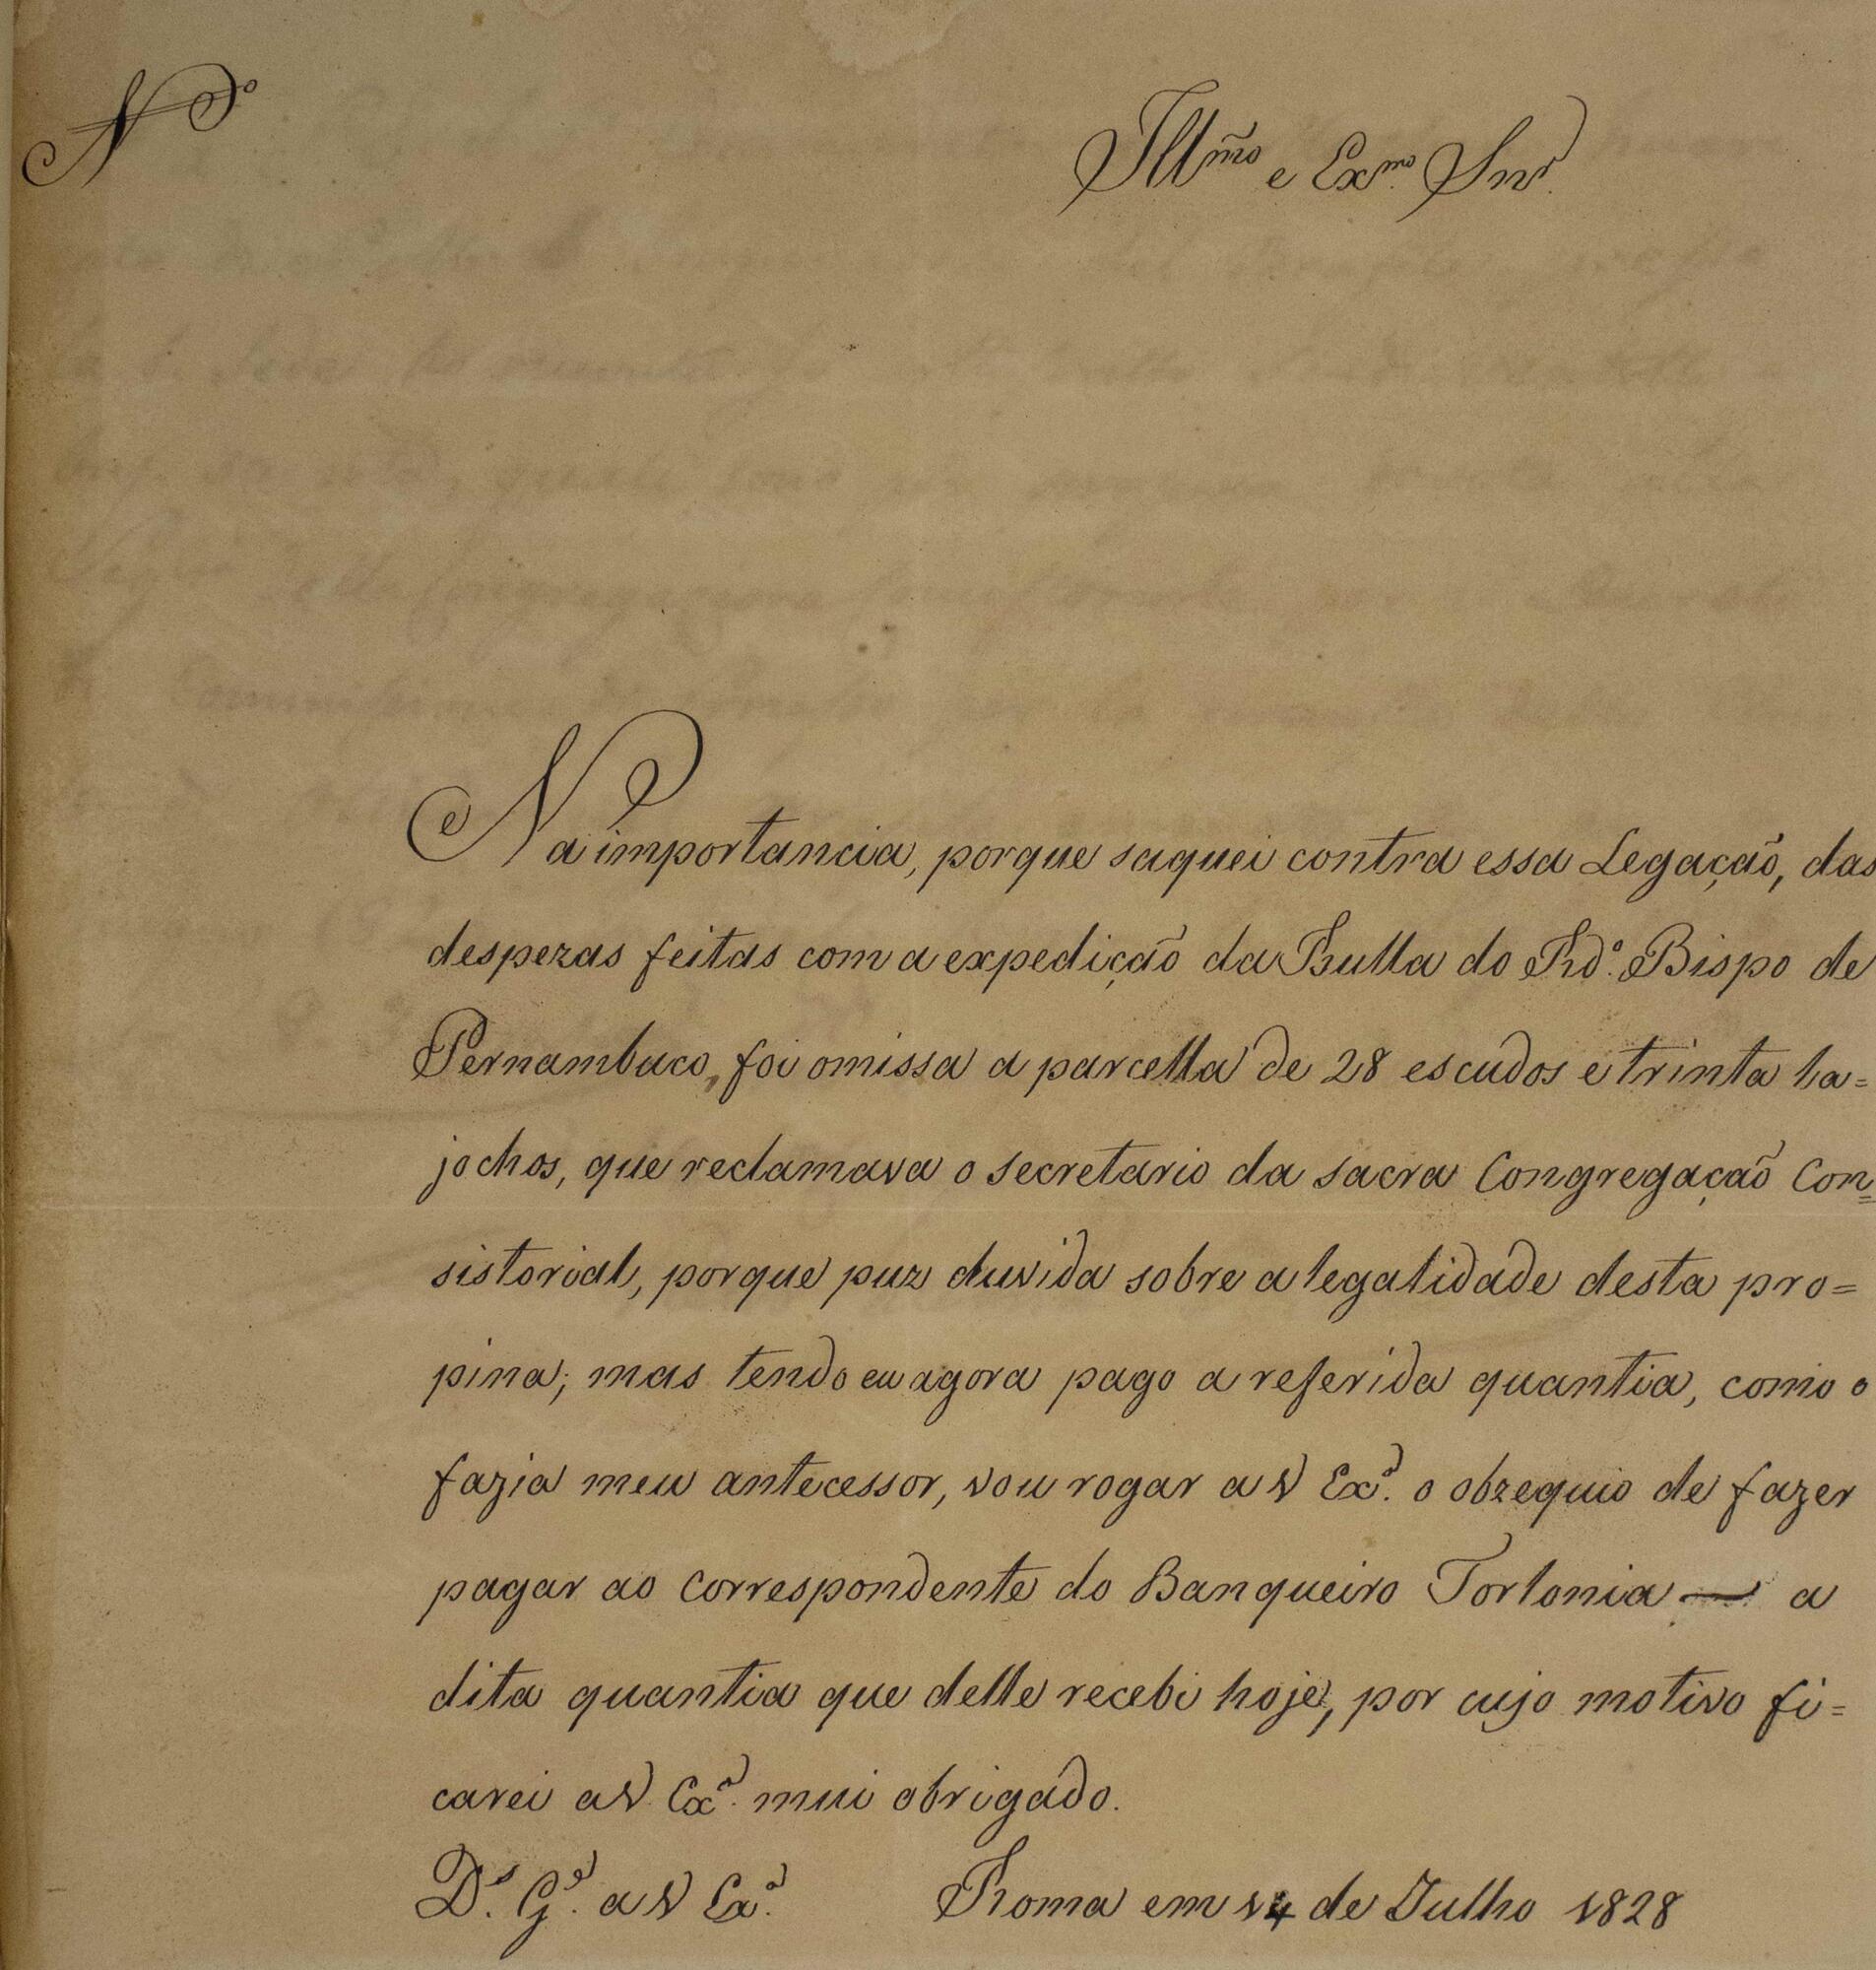 N.º
Illmo e Exmo Snr.
Na importancia, porque saquei contra essa Legação, das
despezas feitas com a expedição da Bulla do Rdo. Bispo de
Pernambuco, foi omissa a parcella de 28 escudos e trinta ba=
jochos, que reclamava o secretario da sacra Congregação Con=
sistorial, porque puz duvida sobre a legalidade desta pro=
pina; mas tendo eu agora pago a referida quantia, como o
fazia meu antecessor, vou rogar a V Exa. o obzequio de fazer
pagar ao correspondente do Banqueiro Torlonia — a
dita quantia que delle recebi hoje, por cujo motivo fi=
carei a V. Exa. mui obrigado.
Ds. Ge. a V Exa. Roma em 14 de Julho 1828